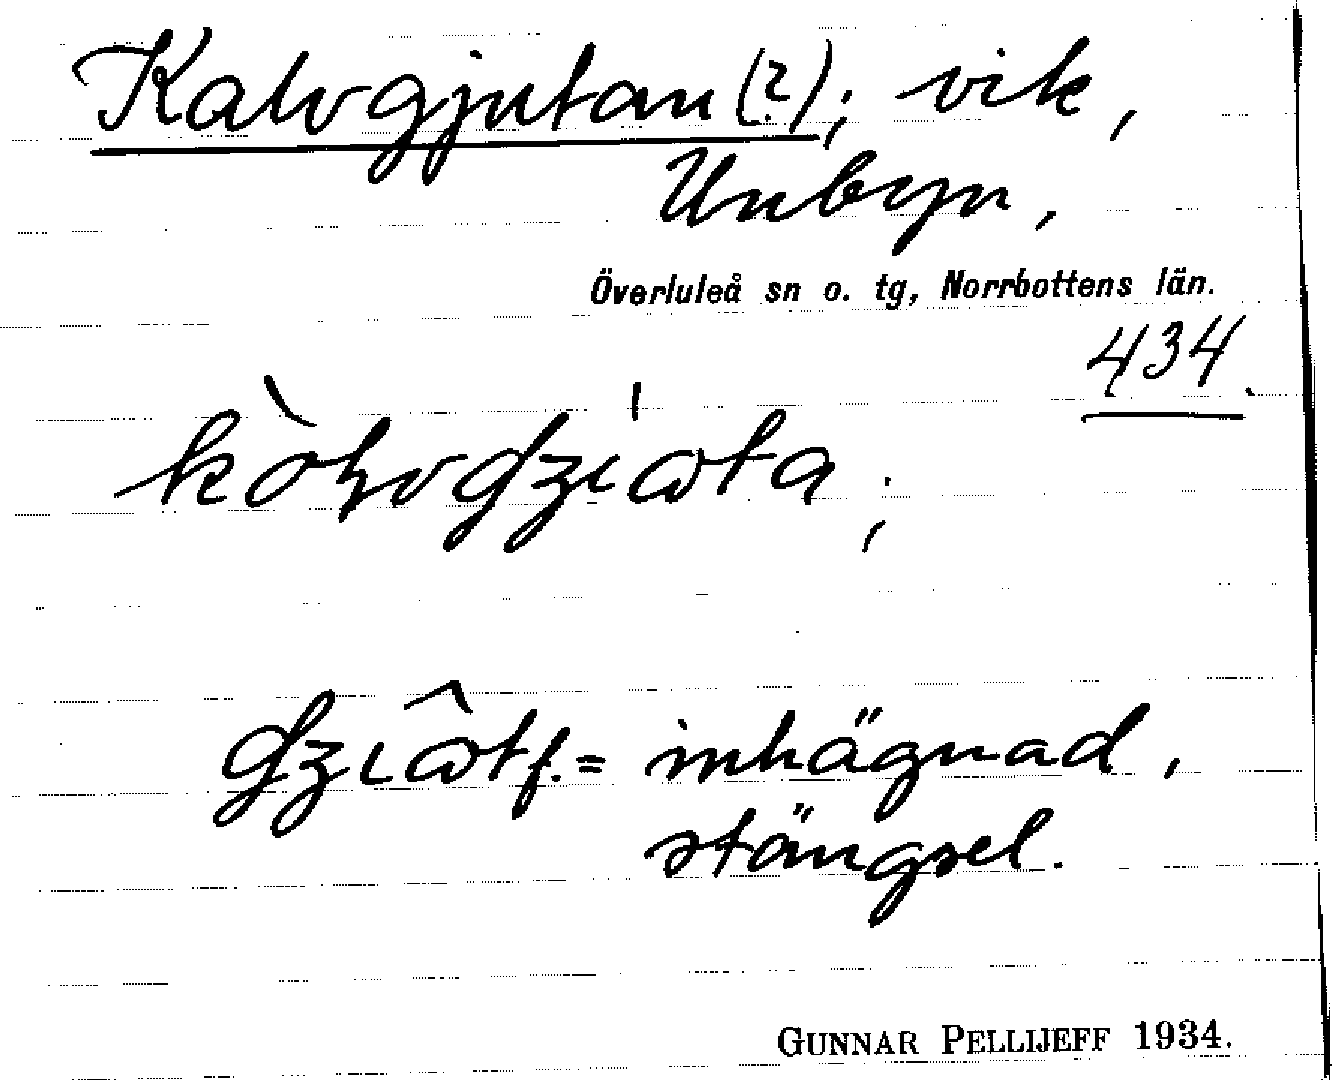 Kalvgjutan (?); vik,
Unbyn,
Överluleå sn o. tg, Norrbottens län.
434.
f. = inhägnad,
stängsel.
GUNNAR PELLIJEFF 1934.